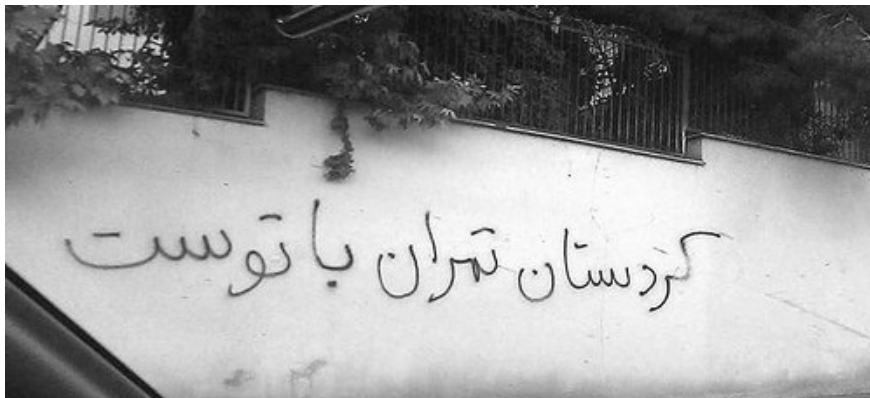 کردستان تهران با توست